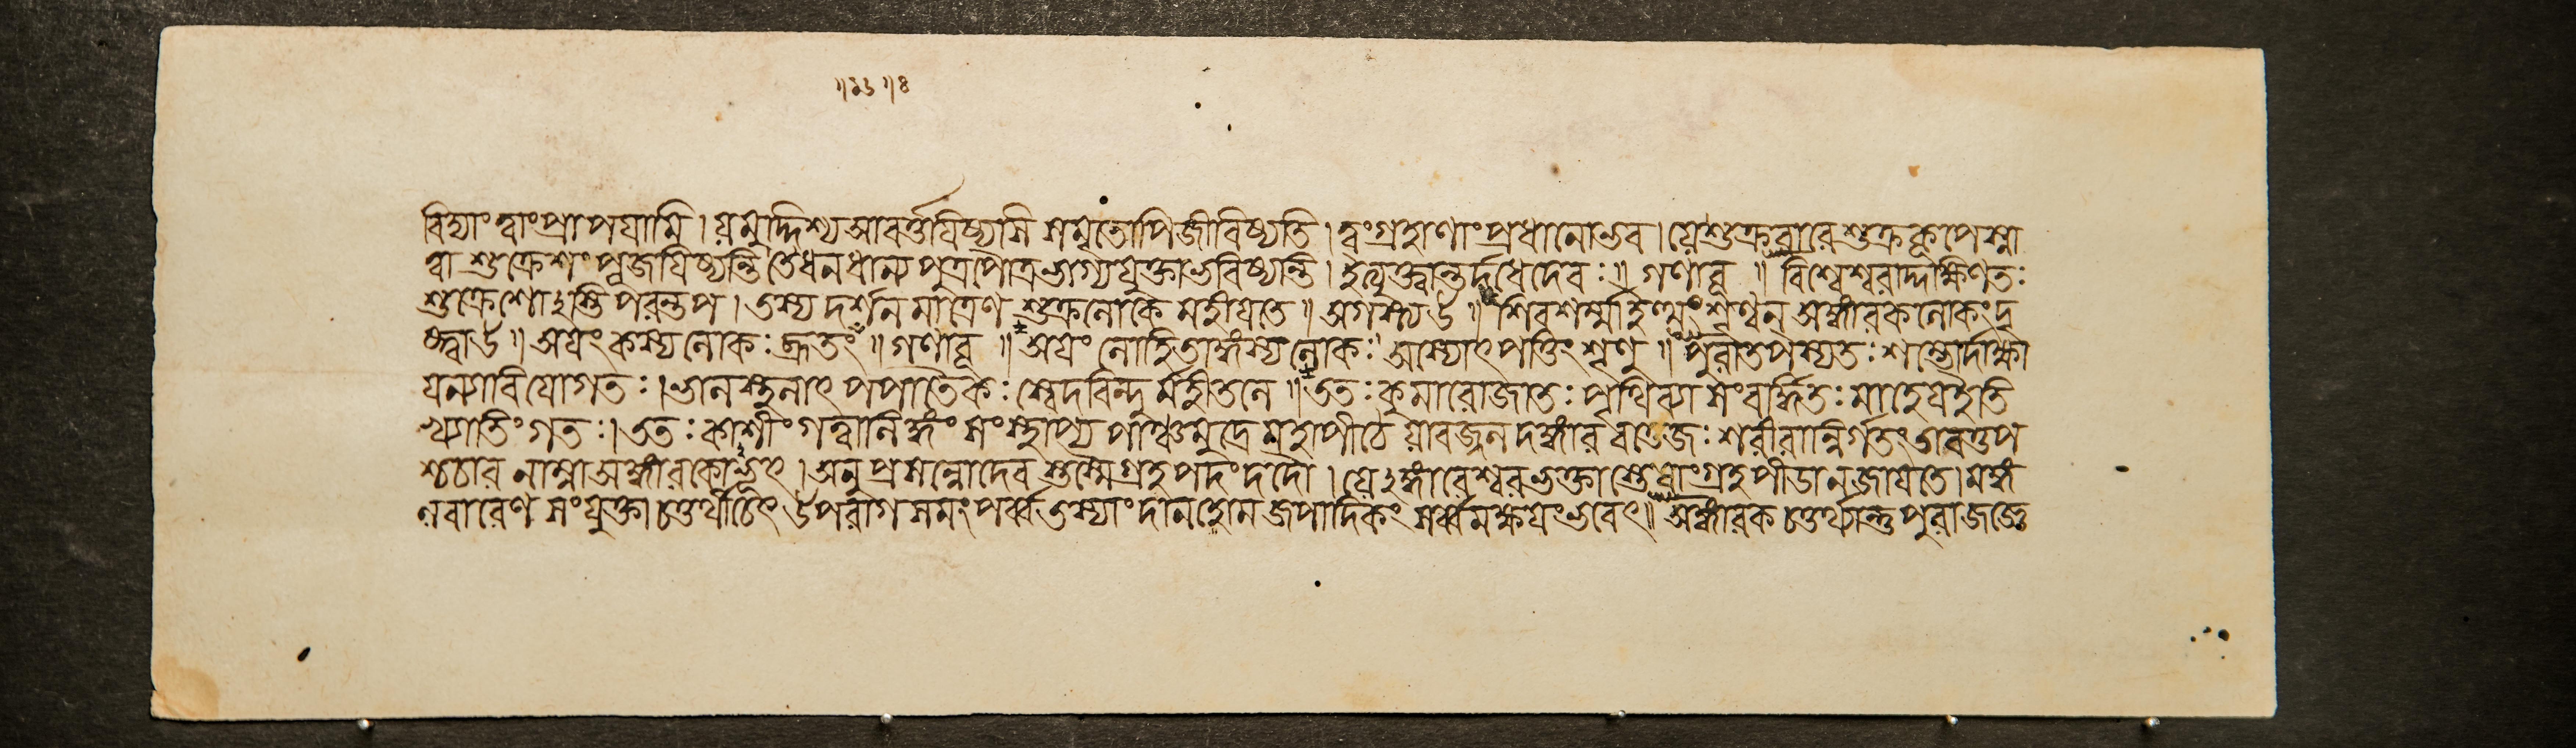 ॥১৬॥ঃ
বিদ্যাং ত্বাং প্রাপযামি । যমুদ্দিশ্য আবর্ত্তযিষ্যসি স মৃতোপি জীবিষ্যতি । ত্বং গ্রহাণাং প্রধানো ভব । যে শুক্রবারে শুক্রকূপে স্না
ত্বা শুক্রেশং পূজযিষ্যন্তি তে ধনধান্যপুত্রপৌত্রভাগ্যযুক্তা ভবিষ্যন্তি । ইত্যুক্ত্বান্তর্দধে দেবঃ ॥ গণাবূ ॥ বিশ্বেশ্বরাদ্দক্ষিণতঃ
শুক্রেশোঽস্তি পরন্তপ । তস্য দর্শনমাত্রেণ শুক্রলোকে মহীযতে ॥ অগস্ত্য উ ॥ শিবশর্ম্মা শৃণ্বন্ অঙ্গারকলোকং দৃ
ষ্ট্বা উ ॥ অযং কস্য লোকঃ ॥ গণাবূ ॥ অযং লোহিতাঙ্গস্য লোকঃ অস্যোৎপত্তিং শৃণু ॥ পুরা তপস্যতঃ শম্ভোর্দাক্ষা
যণ্যা বিযোগতঃ । ভালস্থলাৎ পপাতৈকঃ স্বেদবিন্দুর্মহীতলে ॥ ততঃ কুমারো জাতঃ পৃথিব্যা সংবর্দ্ধিতঃ মাহেয ইতি
খ্যাতিং গতঃ । ততঃ কাশীং গত্বা লিঙ্গং সংস্থাপ্য পাঞ্চমুদ্রে মহাপীঠে যাবজ্জ্বলদঙ্গারবত্তেজঃ শরীরান্নির্গতং তাবত্তপ
শ্চচার নাম্না অঙ্গারকোঽভূৎ । অনু প্রসন্নো দেবস্তস্মৈ গ্রহপদং দদৌ । যেঽঙ্গারেশ্বরভক্তাস্তেষাং গ্রহপীডা ন জাযতে । মঙ্গ
লবারেণ সংযুক্তা চতুর্থী চেৎ উপরাগসমং পর্ব্ব তস্যাং দানহোমজপাদিকং সর্ব্বমক্ষযং ভবেৎ ॥ অঙ্গারকচতুর্থ্যান্তু পুরা জজ্ঞে